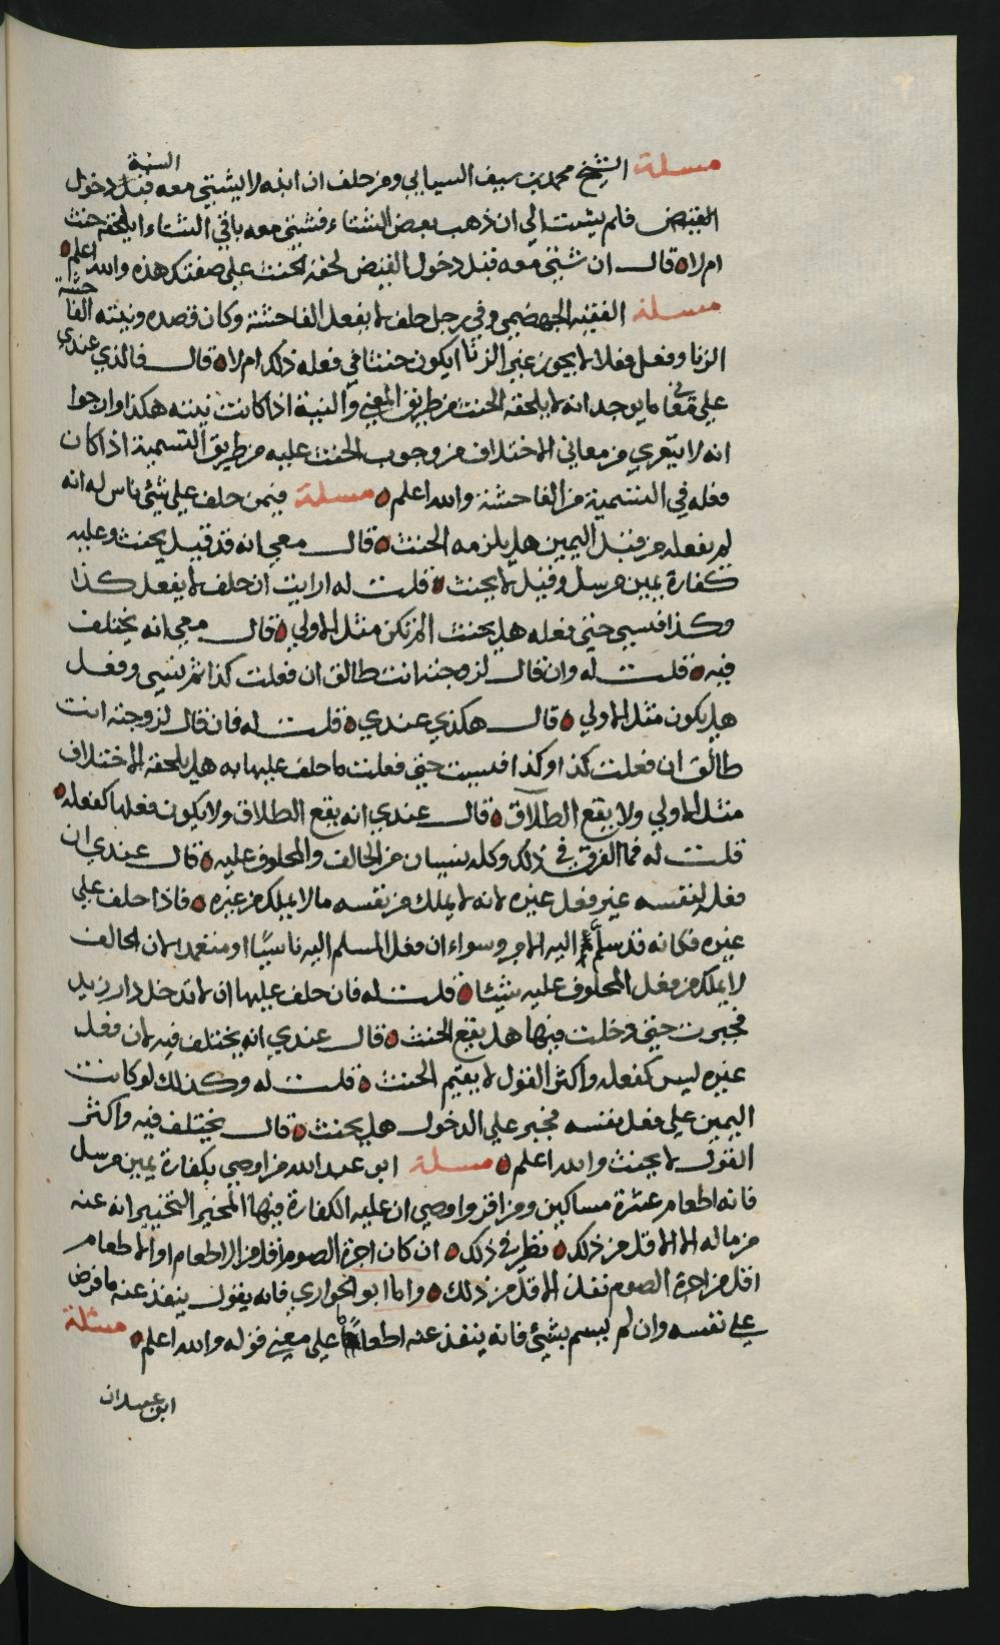 مسلة الشيخ محمد بن سيف السيابي ومن حلف ان ابنه لا يشتي معه السنة قبل دخول
القيض فلم يشت الي ان ذهب بعض الشتاء فشتي معه باقي الشتاء ايلحقه حنث
ام لا قال ان شتي معه قبل دخول القيض لحقه الحنث علي صفتك هذه والله اعلم
مسلة الفقيه الجهضمي وفي رجل حلف لا يفعل الفاحشة وكان قصده ونيته الفاحشة
الزنا وفعل فعلا لا يجوز غير الزنا ايكون حنثا في فعله ذلك ام لا قال فالذي عندي
علي معاني ما يوجد انه لا يلحقه الحنث من طريق المعني والنية اذا كانت نيته هكذا وارجوا
انه لا يتعري من معاني الاختلاف من وجوب الحنث عليه من طريق التسمية اذا كان
فعله في التسمية من الفاحشة والله اعلم مسلة فيمن حلف علي شئ ناس له انه
لم يفعله من قبل اليمين هل يلزمه الحنث قال معي انه قد قيل يحنث وعليه
كفارة يمين مرسل وقيل لا يحنث قلت له ارايت ان حلف لا يفعل كذا
وكذا فنسي حتي فعله هل يحنث الم تكن مثل الاولي قال معي انه يختلف
فيه قلت له وان قال لزوجته انت طالق ان فعلت كذا ثم نسي وفعل
هل يكون مثل الاولي قال هكذي عندي قلت له فان قال لزوجته انت
طالق ان فعلت كذا وكذا فنسيت حتي فعلت ما حلف عليها به هل يلحقه الاختلاف
مثل الاولي ولا يقع الطلاق قال عندي انه يقع الطلاق ولا يكون فعلها كفعله
قلت له فما الفرق في ذلك وكله نسيان من الحالف والمحلوف عليه قال عندي ان
فعله لنفسه غير فعل غيره لانه لا يملك من نفسه ما لا يملك من غيره فاذا حلف علي
غيره فكانه قد سلم اليه الامر وسواء ان فعل المسلم اليه ناسيا او متعمدا لان الحالف
لا يملك من فعل المحلوف عليه شيئا قلت له فان حلف عليها ان لا تدخل دار زيد
فجبرت حتي دخلت فيها هل يقع الحنث قال عندي انه يختلف فيه لان فعل
غيره ليس كفعله واكثر القول لا يقيم الحنث قلت له وكذلك لو كانت
اليمين علي فعل نفسه فجبر علي الدخول هل يحنث قال يختلف فيه واكثر
القول لا يحنث والله اعلم مسلة ابو عبد الله من اوصي بكفارة يمين مرسل
فانه اطعام عشرة مساكين ومن اقر واوصي ان عليه الكفارة فيها المخير التخيير انه عنه
من ماله الا الاقل من ذلك نظر في ذلك ان كان اجرة الصوم اقل من الاطعام او الاطعام
اقل من اجرة الصوم نفذ الاقل من ذلك واما ابو الحواري فانه يقول ينفذ عنه ما فرض
علي نفسه وان لم يسم بشئ فانه ينفذ عنه اطعاما علي معني قوله والله اعلم مسئلة
ابن عبيدان